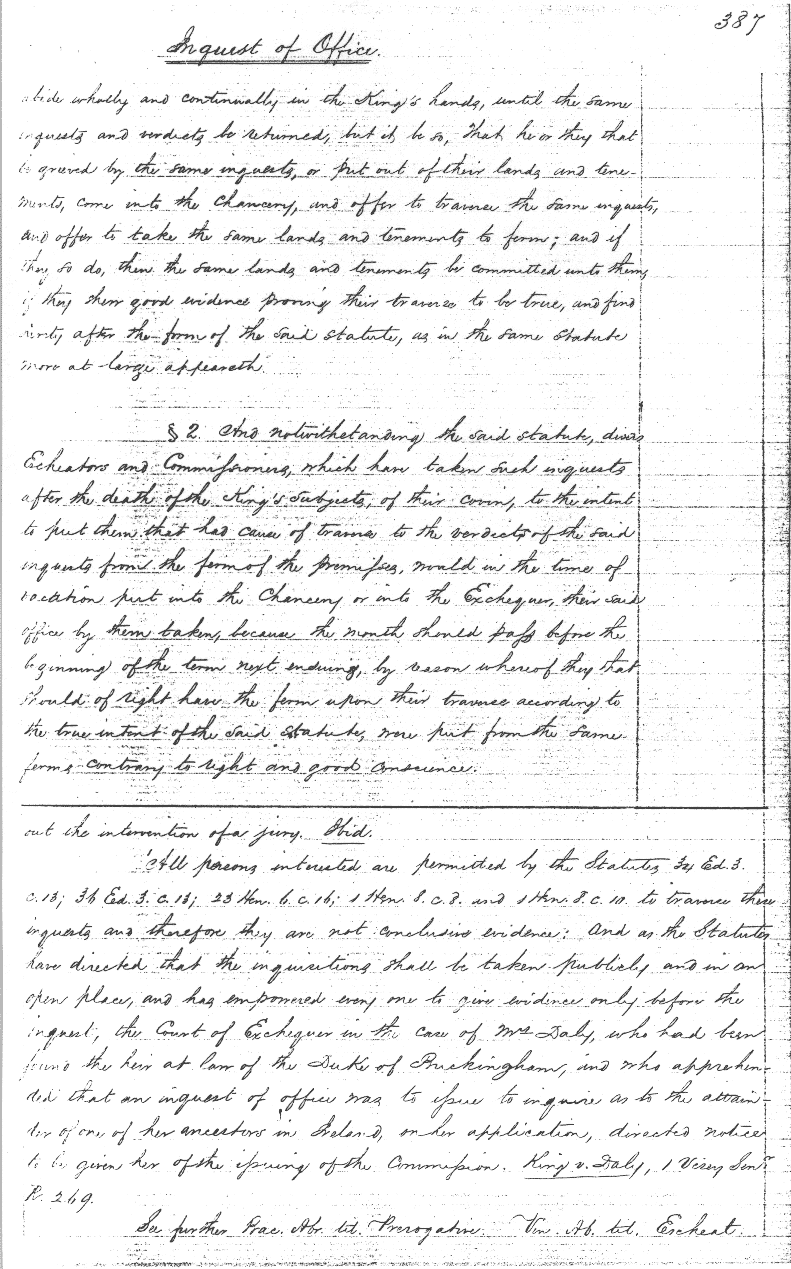 387
Inquest of Office.
abide wholly and continually in the King's hands, until the same
inquests and verdicts be returned, but if it be so, that he or they that
is grieved by the same inquests, or put out of their lands and tene-
ments, come into the Chancery, and offer to traverse the same inquests,
and offer to take the same lands and tenements to ferm; and if
they so do, then the same lands and tenements be committed unto them,
if they shew good evidence proving their traverse to be true, and find
surety after the form of the said statute, as in the same statute
more at large appeareth.
§ 2. And notwithstanding the said statute, divers
Echeators and Commissioners, which have taken such inquests
after the death of the King's subjects, of their covin, to the intent
to put them that had cause of travers to the verdicts of the said
inquests from the ferm of the premisses, would in the time of
vacation put into the Chancery or into the Exchequer, their said
office by them taken, because the month should pass before the
beginning of the term next ensuing, by reason whereof they that
should of right have the ferm upon their traverse according to
the true intent of the said statute, were put from the same
ferms contrary to right and good conscience.
out the intervention of a jury. Ibid.
All persons interested are permitted by the Statutes 34 Ed. 3.
c. 13; 36 Ed. 3. c. 13; 23 Hen. 6 c. 16; 1 Hen. 8. c. 8. and 1 Hen. 8. c. 10. to traverse these
inquests and therefore they are not conclusive evidence: And as the Statutes
have directed that the inquisitions shall be taken publicly and in an
open place, and has empowered every one to give evidence only before the
inquest, the Court of Exchequer in the case of Mrs Daly, who had been
found the heir at law of the Duke of Buckingham, and who apprehen-
ded that an inquest of office was to issue to inquire as to the attain-
der of one of her ancestors in Ireland, on her application, directed notice
to be given her of the issuing of the Commission. King v. Daly, 1 Vesey Senr
R. 269.
See further Bac. Abr. tit. Prerogative. Vin. Ab. tit. Escheat